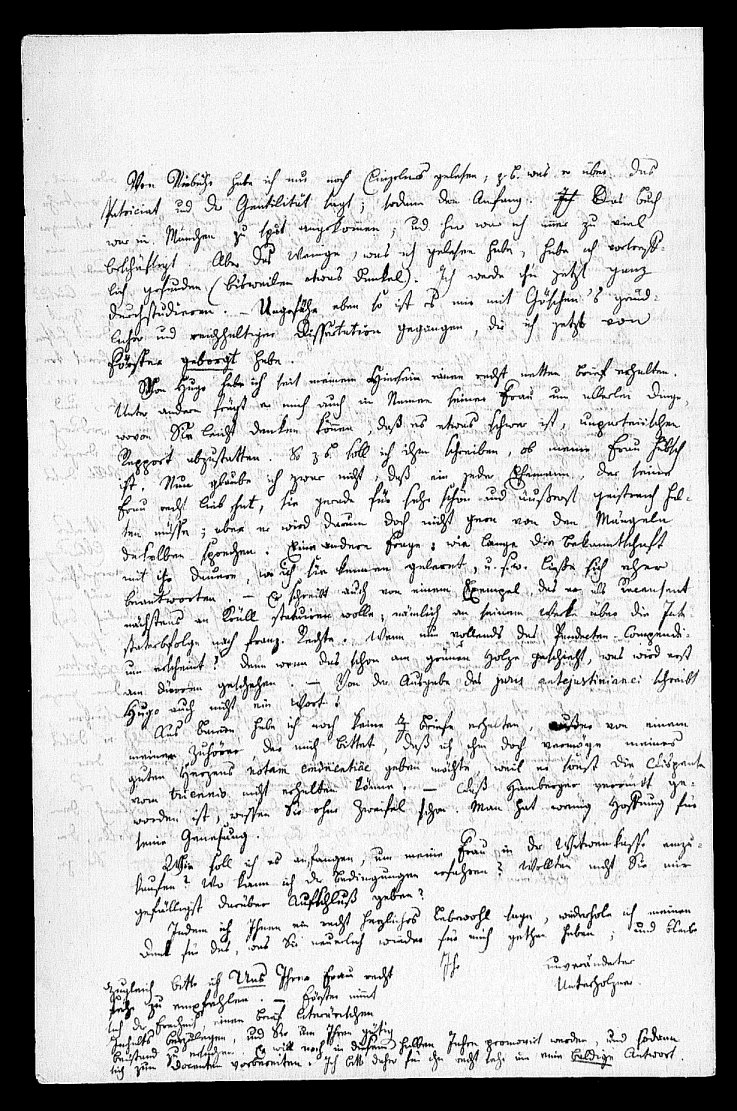 Von Niebuhr habe ich nur noch Einzelnes gelesen, z. b. was er über das
Patriciat und die Gentilität sagt; sodann den Anfang. Das Buch
war in München zu spät angekommen; und hier war ich immer zu viel
beschäftigt. Aber das Wenige, was ich gelesen habe, habe ich vortreff-
lich gefunden (bisweilen etwas dunkel). Ich werde ihn jetzt ganz
durchstudieren. – Ungefähr eben so ist es mir mit Göschen's gründ-
licher und reichhaltiger Dissertation gegangen, die ich jetzt von
Förster geborgt habe.
Von Hugo habe ich seit meinem Hiersein einen recht netten Brief erhalten.
Unter andern frägt er mich auch im Namen seiner Frau um allerlei Dinge,
wovon Sie leicht denken können, daß es etwas schwer ist, unparteiischen
Rapport abzustatten. So z. b. soll ich ihm schreiben, ob meine Frau hübsch
ist. Nun glaube ich zwar nicht, daß ein jeder Ehemann, der seine
Frau recht lieb hat, sie gerade für sehr schön und äußerst geistreich hal-
ten müsse; aber er wird darum doch nicht gern von den Mängeln
derselben sprechen. Eine andere Frage: wie lange die Bekanntschaft
mit ihr dauere, wo ich sie kennen gelernt, u. s. w. ließe sich eher
beantworten. – Er schreibt auch von einem Exempel, das er als Recensent
nächstens an Krüll statuiren wolle, nämlich an seinem Werk über die Inte-
staterbfolge nach franz. Rechte. Wenn nun vollends das Pandecten-Compendi-
um erscheint? Denn wenn das schon am grünen Holze geschieht, was wird erst
am dürren geschehen. – Von der Ausgabe des juris antejustinianei schreibt
Hugo auch nicht ein Wort!
Aus habe ich noch keine Briefe erhalten, außer von einem
meiner Zuhörer der mich bittet, daß ich ihm doch vermöge meines
guten Herzens notam eminentiae geben möchte weil er sonst die Dispens
vom triennio nicht erhalten könne. – Daß Hamberger verrückt ge-
worden ist, wissen Sie ohne Zweifel schon. Man hat wenig Hoffnung für
seine Genesung.
Wie soll ich es anfangen, um meine Frau in die Witwenkasse einzu-
kaufen? Wo kann ich die Bedingungen erfahren? Wollten nicht Sie mir
gefälligst darüber Aufschluß geben?
Indem ich Ihnen ein recht herzliches Lebewohl sage, wiederhole ich meinen
Dank für das, was Sie neuerlich wieder für mich gethan haben; und bleibe
Ihr unveränderter
Unterholzner.
Zugleich bitte ich Uns Ihrer Frau recht
sehr zu empfehlen. – Förster nimmt
sich die Freiheit einen Brief literärischen
Inhalts beizulegen, und Sie um Ihren gütig
Beistand zu ersuchen. Er will noch in diesem halben Jahre promovirt werden, und sodann
sich zum Docenten vorbereiten. Ich bitte daher für ihn recht sehr um eine baldige Antwort.